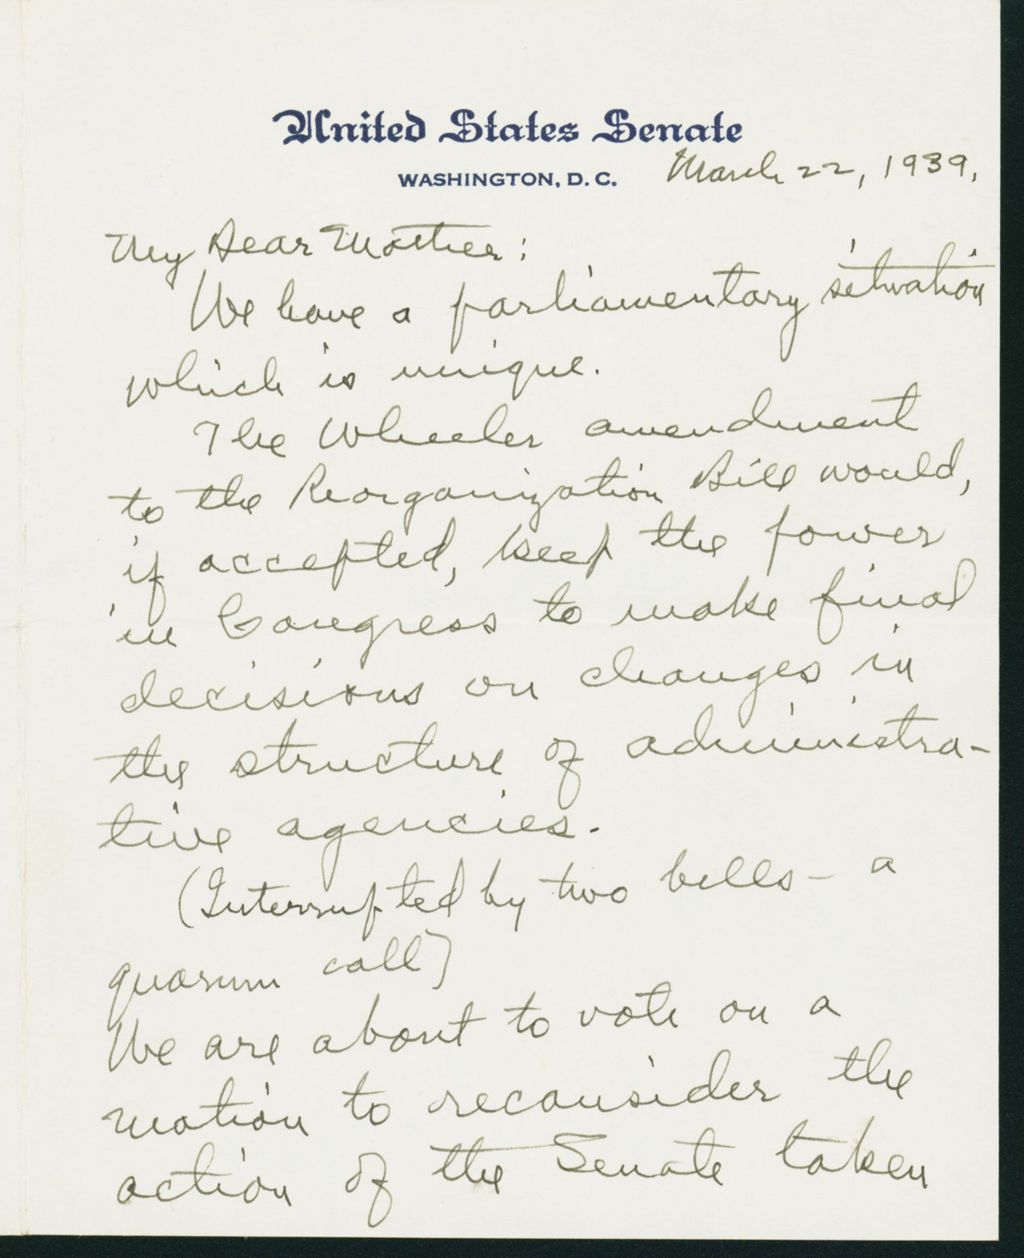 United States Senate
WASHINGTON, D. C.
March 22, 1939.
My Dear Mother:
We have a parliamentary situation
which is unique.
The Wheeler amendment
to the Reorganization Bill would,
if accepted, keep the power
in Congress to make final
decisions on changes in
the structure of administra-
tive agencies.
(Interrupted by two bells - a
quorum call)
We are about to vote on a
motion to reconsider the
action of the Senate taken